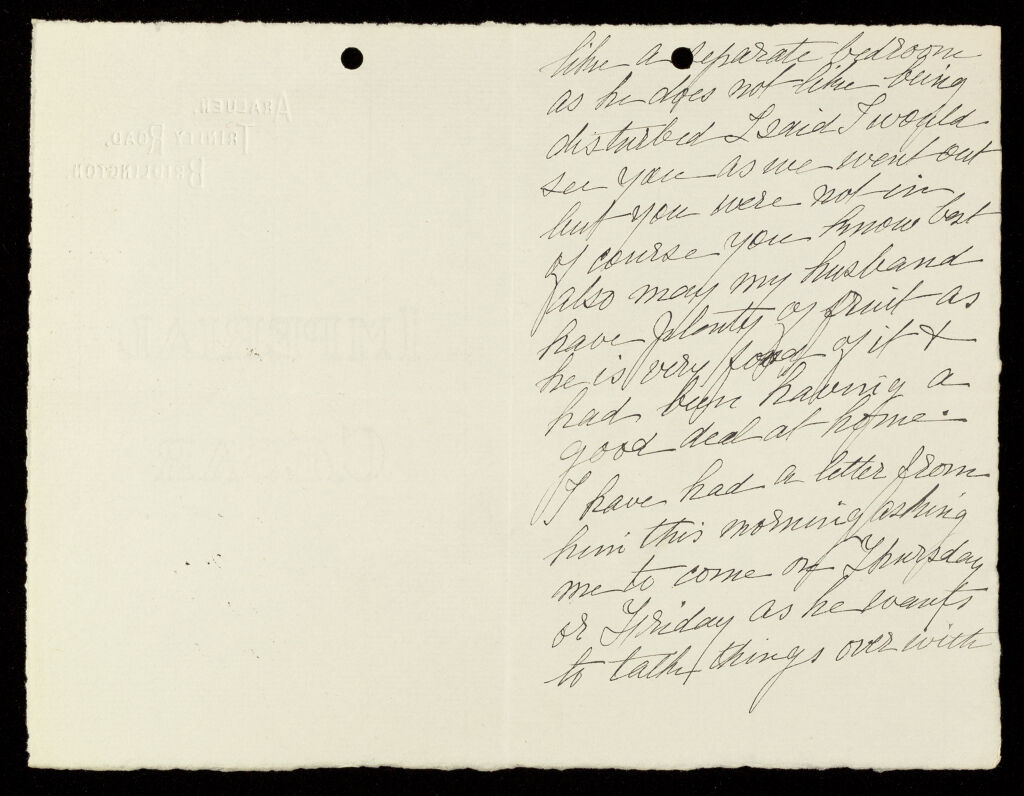 ARALUEN.
TRINITY ROAD,
BRIDLINGTON.
IMPERIAL
CEDAR
like a separate bedroom
as he does not like being
disturbed I said I would
see you as we went out
but you were not in
of course you know best
also may my husband
have plenty of fruit as
he is very fond of it &
had been having a
good deal at home.
I have had a letter from
him this morning asking
me to come on Thursday
or Friday as he wants
to talk things over with